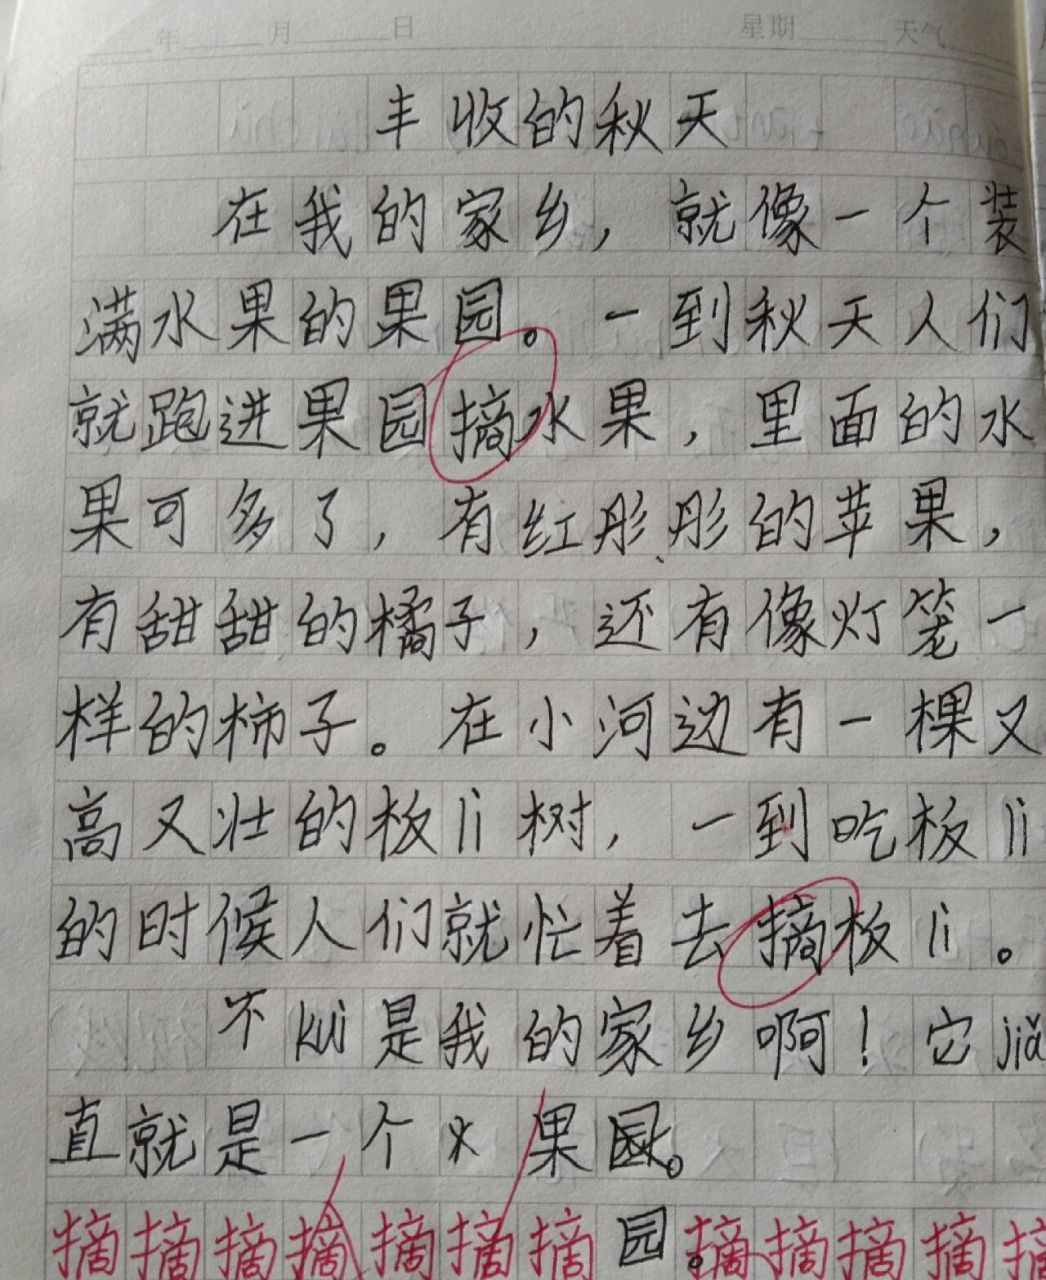 年 月 日 星期 天气
丰收的秋天
在我的家乡，就像一个装
满水果的果园。一到秋天人们
就跑进果园摘水果，里面的水
果可多了，有红彤彤的苹果，
有甜甜的橘子，还有像灯笼一
样的柿子。在小河边有一棵又
高又壮的板lì树，一到吃板lì
的时候人们就忙着去摘板lì。
不kuì是我的家乡啊！它jiǎ
直就是一个 果园。
摘摘摘摘摘摘摘 园。摘摘摘摘摘